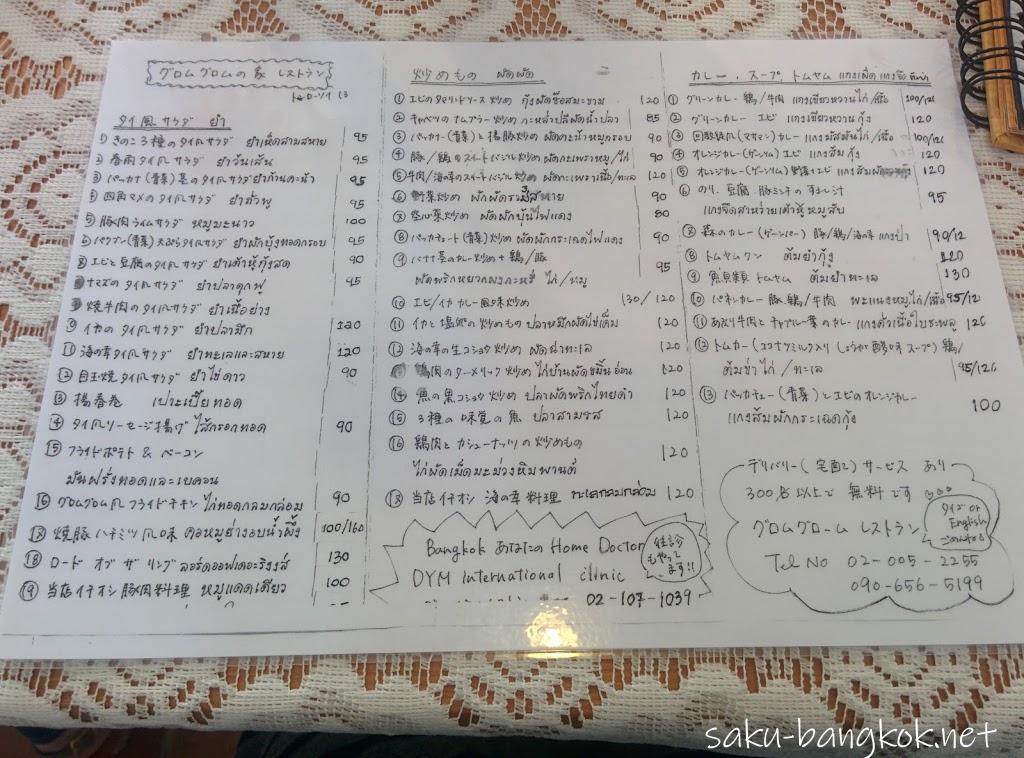 グロムグロムの家 レストラン
トンロー ソイ 13
タイ風サラダ ยำ
① きのこ3種のタイ風サラダ ยำเห็ดสามสหาย 95
② 春雨タイ風サラダ ยำวุ้นเส้น 95
③ パッカナ(青菜)茎のタイ風サラダ ยำก้านคะน้า 95
④ 四角マメのタイ風サラダ ยำถั่วพู 95
⑤ 豚肉ライムサラダ หมูมะนาว 100
⑥ パクブン(青菜)天ぷらタイ風サラダ ยำผักบุ้งทอดกรอบ 95
エビと豆腐のタイ風サラダ ยำเต้าหู้กุ้งสด 90
ナマズのタイ風サラダ ยำปลาดุกฟู 95
焼牛肉のタイ風サラダ ยำเนื้อย่าง
イカのタイ風サラダ ยำปลาหมึก 120
⑪ 海の幸タイ風サラダ ยำทะเลและสหาย 120
⑫ 目玉焼タイ風サラダ ยำไข่ดาว 90
⑬ 揚春巻 เปาะเปี๊ยทอด
⑭ タイ風ソーセージ揚げ ไส้กรอกทอด 90
⑮ フライドポテト & ベーコン
มันฝรั่งทอดและเบคอน
⑯ グロムグロム風フライドチキン ไก่ทอดกลมกล่อม 90
焼豚ハチミツ風味 คอหมูย่างอบน้ำผึ้ง 100/160
⑱ ロード オブ ザ リング ลอร์ดออฟเดอะริงส์ 130
⑲ 当店イチオシ 豚肉料理 หมูแดดเดียว 100
炒めもの ผัดผัด
① エビのタマリンドソース炒め กุ้งผัดซ๊อสมะขาม 120
② キャベツのナムプラー炒め กะหล่ำปลีผัดน้ำปลา 85
③ パッカナー(青菜)と揚豚炒め ผัดคะน้าหมูกรอบ 90
④ 豚/鶏のスイートバジル炒め ผัดกะเพราหมู/ไก่ 90
⑤ 牛肉/海の幸のスイートバジル炒め ผัดกะเพราเนื้อ/ทะเล 120
⑥ 野菜炒め ผักผัดรวมมิตรสหาย 90
空心菜炒め ผัดผักบุ้งไฟแดง 80
⑧ パッカチェート(青菜)炒め ผัดผักกระเฉดไฟแดง 90
⑨ バナナ茎のカレー炒め + 鶏/豚 95
ผัดพริกหยวกผงกะหรี่ ไก่/หมู
⑩ エビ/イカ カレー風味炒め 130/120
⑪ イカと塩卵の炒めもの ปลาหมึกผัดไข่เค็ม 120
⑫ 海の幸の生コショウ炒め ผัดฉ่าทะเล 120
鶏肉のターメリック炒め ไก่บ้านผัดขมิ้นอ่อน 120
⑭ 魚の黒コショウ炒め ปลาผัดพริกไทยดำ 120
⑮ 3種の味覚の魚 ปลาสามรส 120
⑯ 鶏肉とカシューナッツの炒めもの 120
ไก่ผัดเม็ดมะม่วงหิมพานต์
当店イチオシ 海の幸料理 ทะเลกลมกล่อม 120
Bangkok あなたの Home Doctor
DYM International clinic
02-107-1039
往診もやってます!!
カレー、スープ、トムヤム แกงเผ็ด แกงจืด ต้มยำ
① グリーンカレー 鶏/牛肉 แกงเขียวหวานไก่/เนื้อ 100/120
② グリーンカレー エビ แกงเขียวหวานกุ้ง 120
③ 回教徒風(マサマン)カレー แกงมัสมั่นไก่/เนื้อ 100/120
④ オレンジカレー(ゲーンソム)エビ แกงส้มกุ้ง 120
⑤ オレンジカレー(ゲーンソム)野菜+エビ 120
⑥ のり、豆腐、豚ミンチのすまし汁 95
แกงจืดสาหร่ายเต้าหู้หมูสับ
⑦ 森のカレー(ゲーンパー)豚/鶏/海の幸 แกงป่า 90/12
⑧ トムヤムクン ต้มยำกุ้ง 120
⑨ 魚貝類トムヤム ต้มยำทะเล 130
⑩ パネンカレー 豚、鶏/牛肉 พะแนงหมู,ไก่/เนื้อ 95/120
⑪ あぶり牛肉とチャプルー葉のカレー แกงคั่วเนื้อใบชะพลู 120
⑫ トムカー(ココナツミルク入りしょうが酸味スープ)鶏/
ต้มข่าไก่/ทะเล 95/120
⑬ パッカチェー(青菜)とエビのオレンジカレー 100
แกงส้มผักกระเฉดกุ้ง
デリバリー(宅配)サービス あり
300B以上で 無料です ♡♡♡
グロムグローム レストラン
タイ語 or English ごめんなさい
Tel No 02-005-2255
090-656-5199
saku-bangkok.net